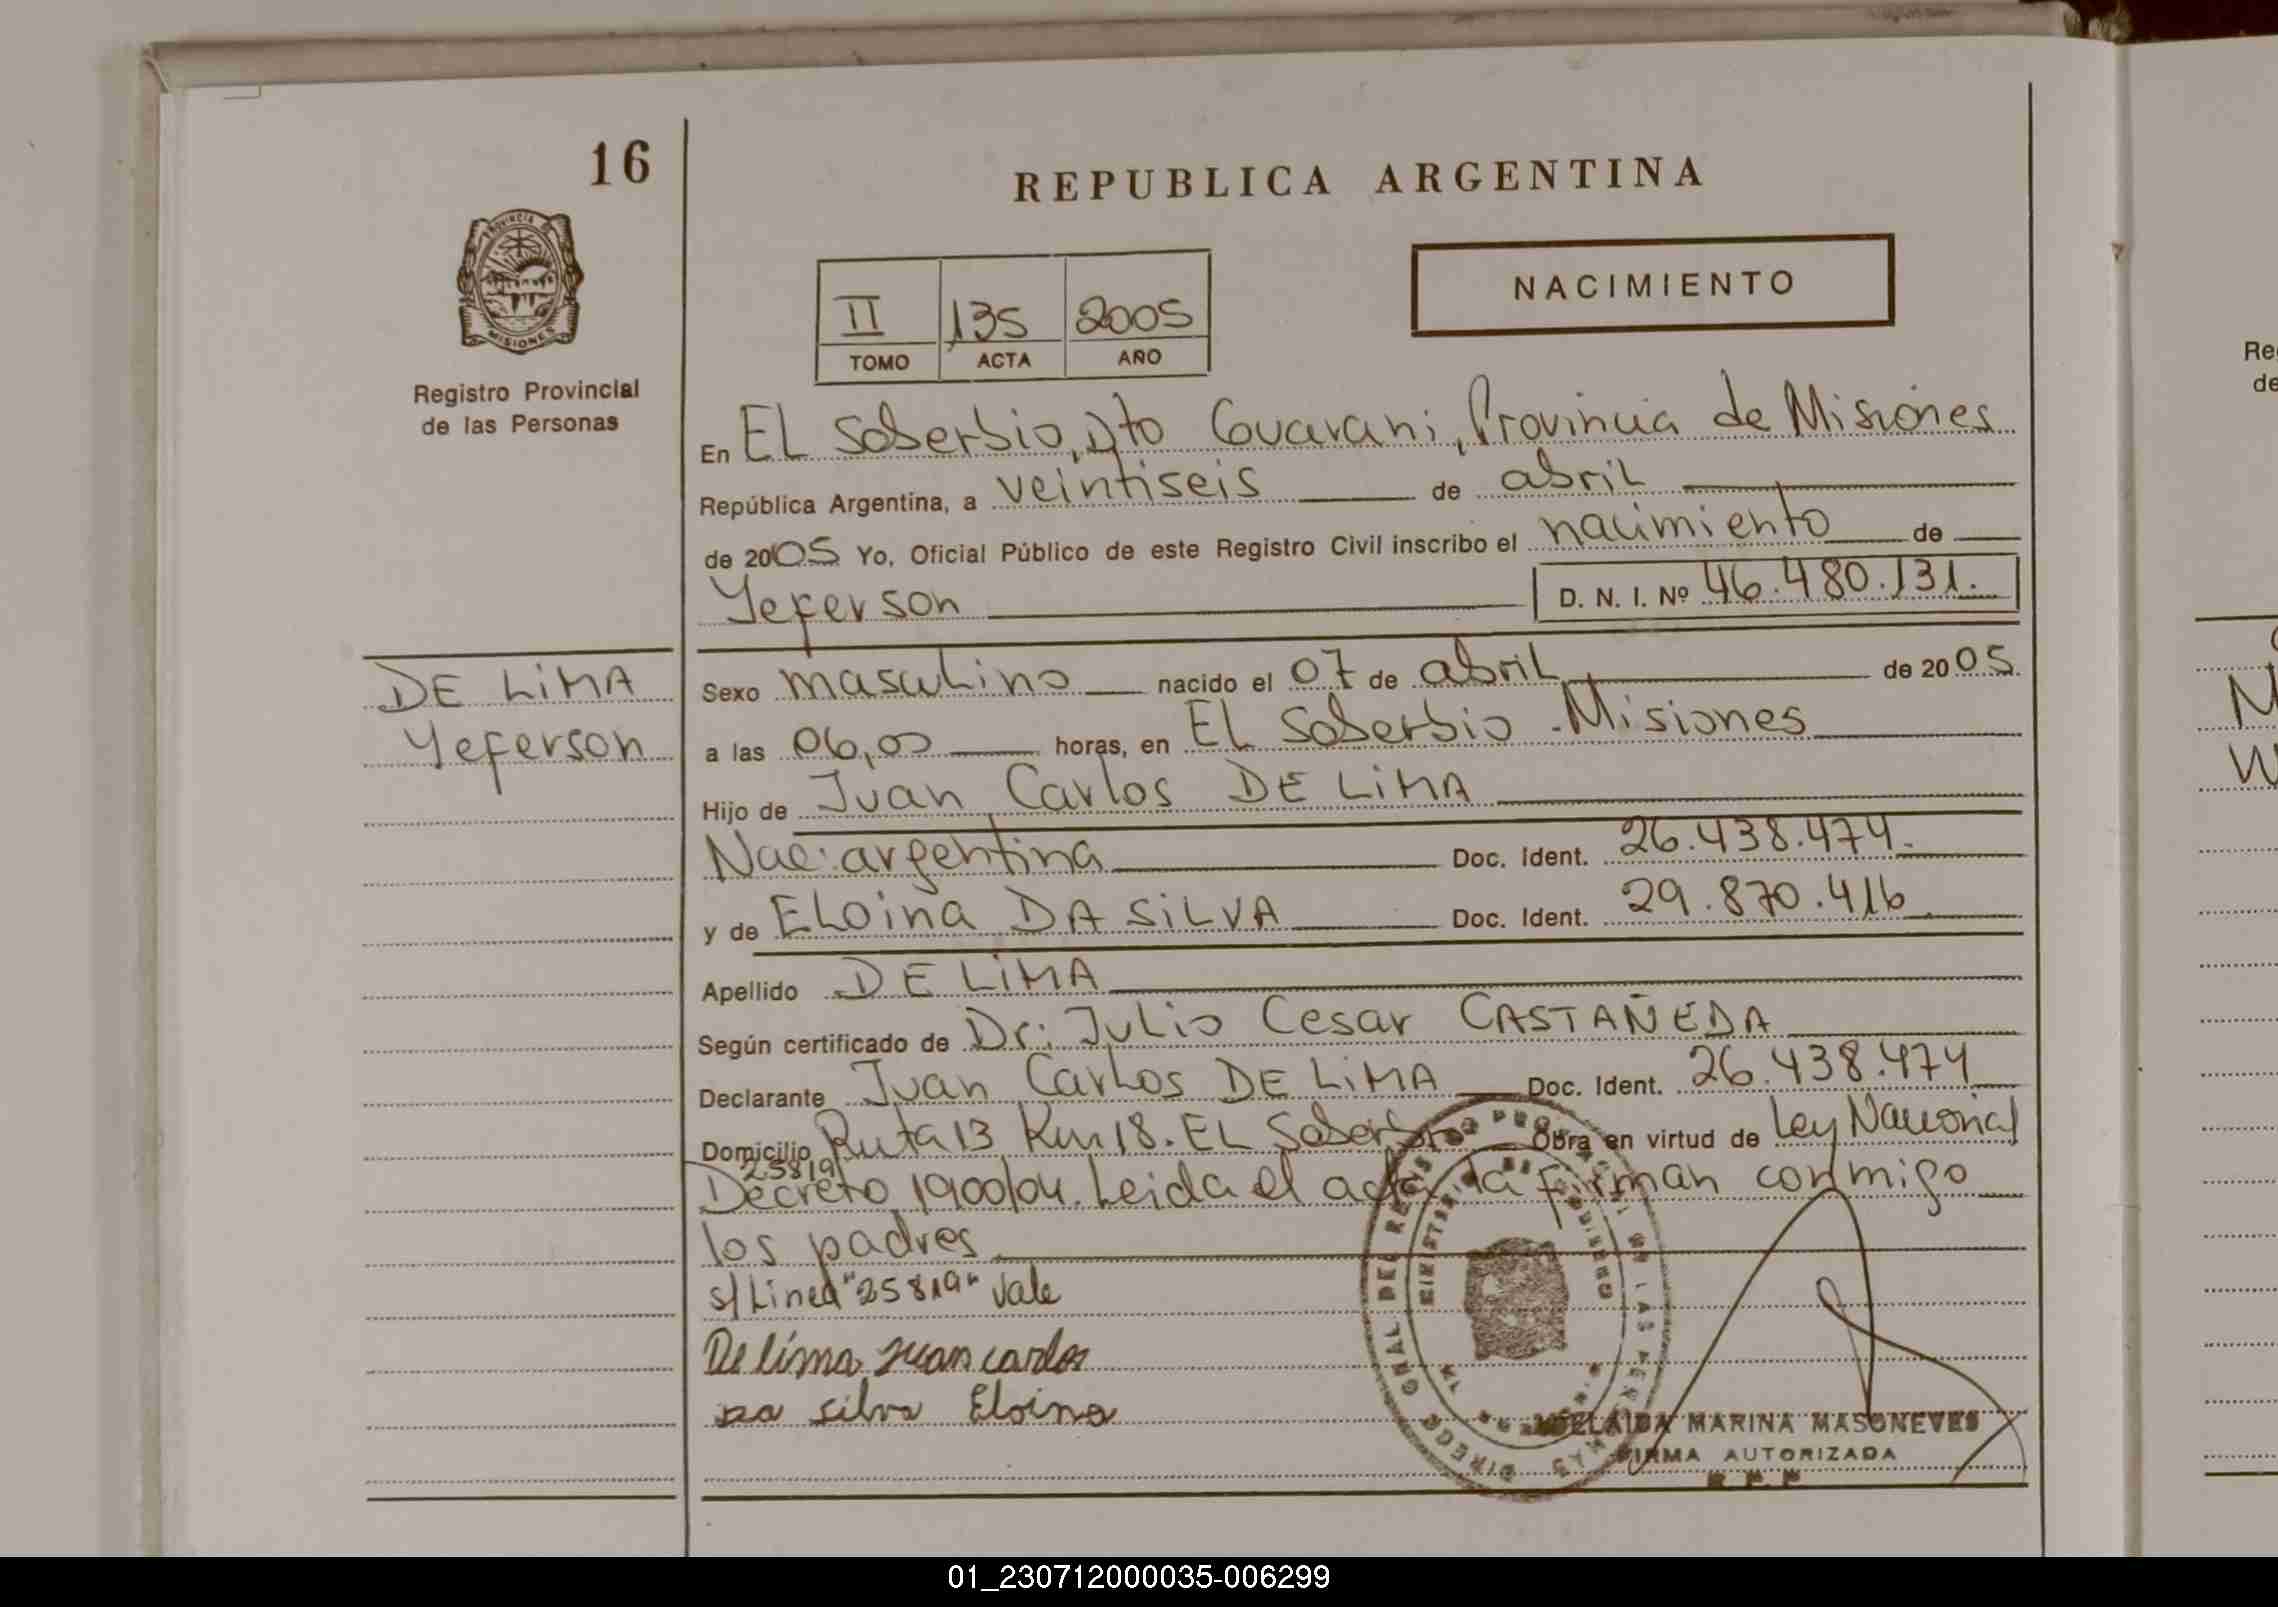 16
REPUBLICA ARGENTINA
PROVINCIA DE
MISIONES
NACIMIENTO
II 135 2005
TOMO ACTA AÑO
Registro Provincial
de las Personas
En EL Soberbio, Dto Guarani, Provincia de Misiones
República Argentina, a veintiseis de abril
de 2005 Yo, Oficial Público de este Registro Civil inscribo el nacimiento de
Yeferson D. N. I. Nº 46.480.131.
DE LiMA
Yeferson
Sexo masculino nacido el 07 de abril de 2005.
a las 06,00 horas, en EL Soberbio - Misiones
Hijo de Juan Carlos DE LiMA
Nac: argentina Doc. Ident. 26.438.474.
y de ELoina DA SiLVA Doc. Ident. 29.870.416
Apellido DE LiMA
Según certificado de Dr: Julio Cesar CASTAÑEDA
Declarante Juan Carlos DE LiMA Doc. Ident. 26.438.474
Domicilio Ruta 13 Km 18. EL Soberbio Obra en virtud de Ley Nacional
25819
Decreto 1900/04. Leida el acta la firman conmigo
los padres
s/Linea "25819" vale
De lima Juan carlos
Da silva Eloina
ADELAIDA MARINA MASONEVES
FIRMA AUTORIZADA
R. P. P.
Re
de
01_230712000035-006299